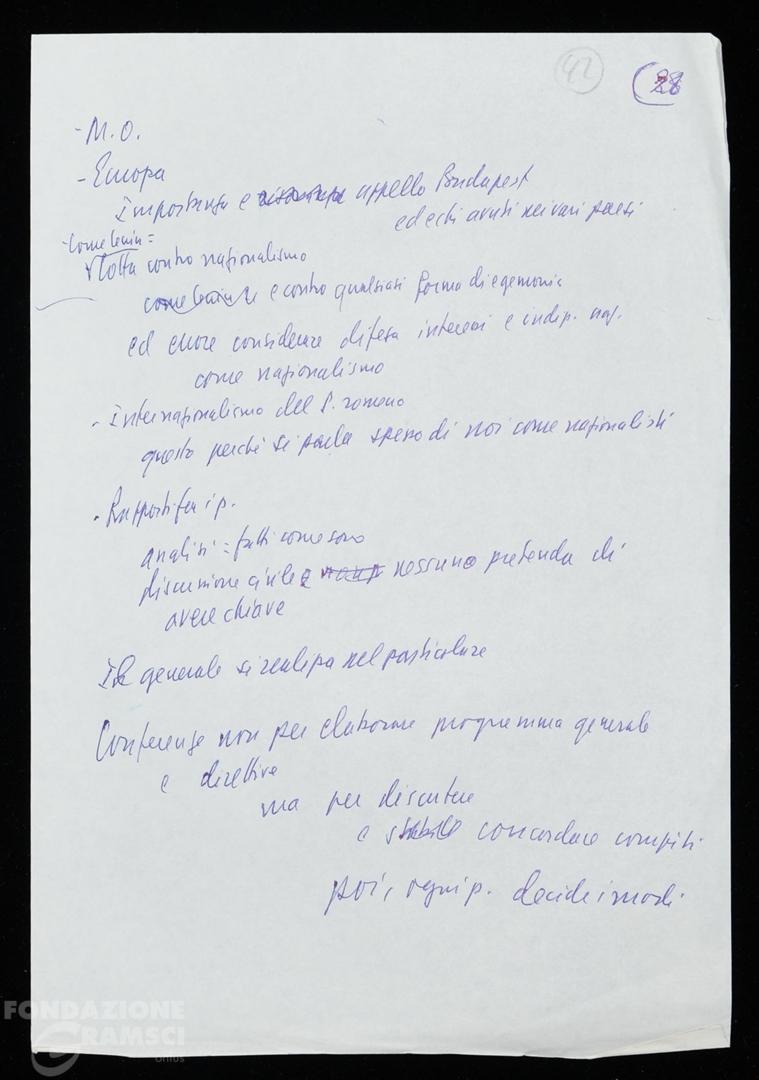 42
28
- M. O.
- Europa
Importanza e appello Budapest
ed echi avuti nei vari paesi
- Come Lenin =
lotta contro nazionalismo
come Lenin e contro qualsiasi forma di egemonia
ed errore considerare difesa interessi e indip. naz.
come nazionalismo
- Internazionalismo del P. romeno
questo perché si parla spesso di noi come nazionalisti
- Rapporti fra i p.
analisi = fatti come sono
discussione civile e nessuno pretenda di
avere chiave
Il generale si realizza nel particolare
Conferenze non per elaborare programma generale
e direttive
ma per discutere
e concordare compiti
poi, ogni p. decide i modi
FONDAZIONE
GRAMSCI
onlus